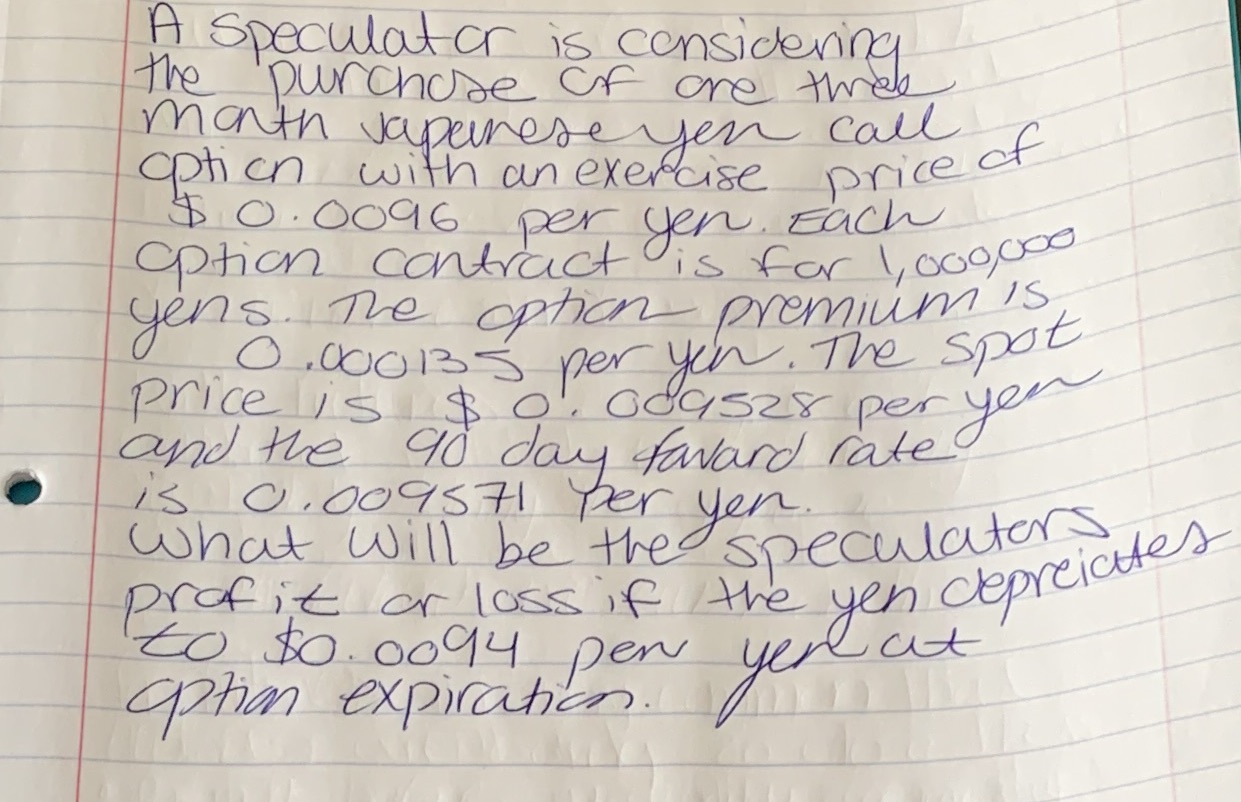 A speculator is considering
the purchase of one three
month Japanese yen call
option with an exercise price of
$ 0.0096 per yen. Each
option contract is for 1,000,000
yens. The option premium is
0.000135 per yen. The spot
price is $ 0.009528 per yen
and the 90 day forward rate
is 0.009571 per yen.
What will be the speculators
profit or loss if the yen depreicates
to $0.0094 per yen at
option expiration.